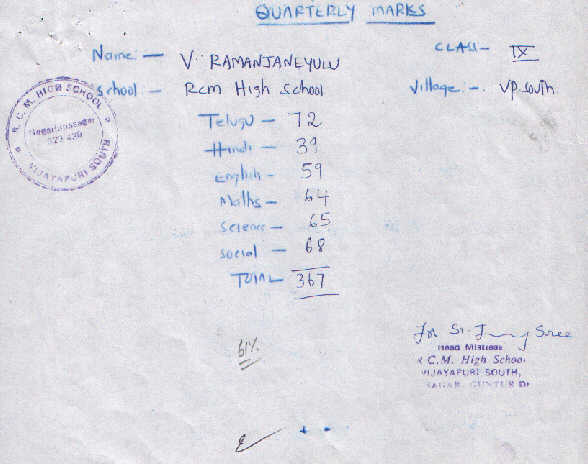 QUARTERLY MARKS
Name — V. RAMANJANEYULU
CLASS — IX
School — Rcm High School
Village — VP. South
R.C.M. HIGH SCHOOL
Nagarjunasagar
522 439
VIJAYAPURI SOUTH
Telugu — 72
Hindi — 39
English — 59
Maths — 64
Science — 65
Social — 68
TOTAL 367
61%
for Sr.
Sree
Head Mistress
R C.M. High School
VIJAYAPURI SOUTH,
SAGAR, GUNTUR Dt